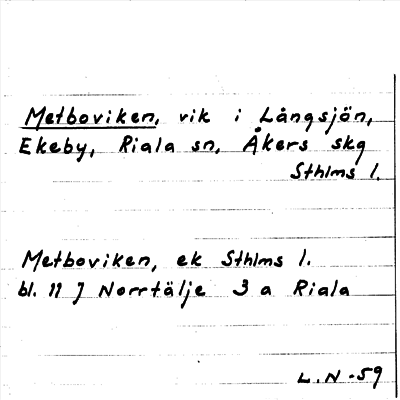 Metboviken, vik i Långsjön,
Ekeby, Riala sn, Åkers skg
Sthlms l.
Metboviken, ek Sthlms l.
bl. 11 J Norrtälje 3 a Riala
L.N-59